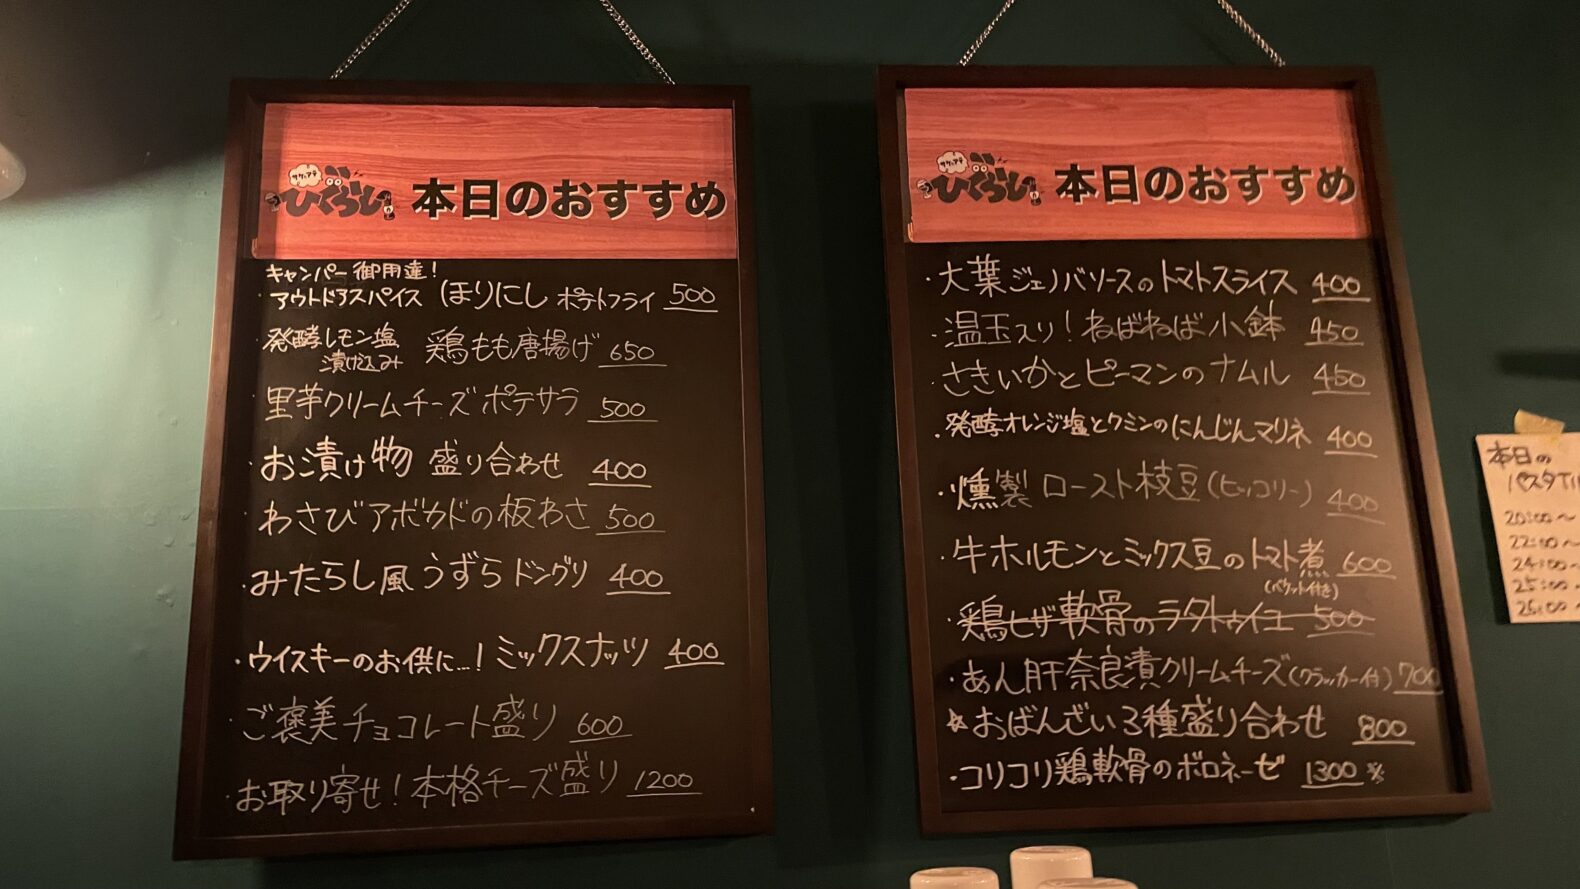 サクッアテ
ひぐらし 本日のおすすめ
キャンパー御用達!
・アウトドアスパイス ほりにし ポテトフライ 500
・発酵レモン塩 漬け込み 鶏もも唐揚げ 650
・里芋クリームチーズポテサラ 500
・お漬け物 盛り合わせ 400
・わさびアボカドの板わさ 500
・みたらし風うずらドングリ 400
・ウイスキーのお供に…!ミックスナッツ 400
・ご褒美チョコレート盛り 600
・お取り寄せ!本格チーズ盛り 1200
サクッアテ
ひぐらし 本日のおすすめ
・大葉ジェノバソースのトマトスライス 400
・温玉入り!ねばねば小鉢 450
・さきいかとピーマンのナムル 450
・発酵オレンジ塩とクミンのにんじんマリネ 400
・燻製ロースト枝豆(ヒッコリー) 400
・牛ホルモンとミックス豆のトマト煮 600
(バケット付き)
・鶏ヒザ軟骨のラタトゥイユ 500
・あん肝奈良漬クリームチーズ(クラッカー付) 700
☆おばんざい3種盛り合わせ 800
・コリコリ鶏軟骨のボロネーゼ 1300※
本日の
パスタTI
20:00〜
22:00〜
24:00〜
25:00〜
26:00〜